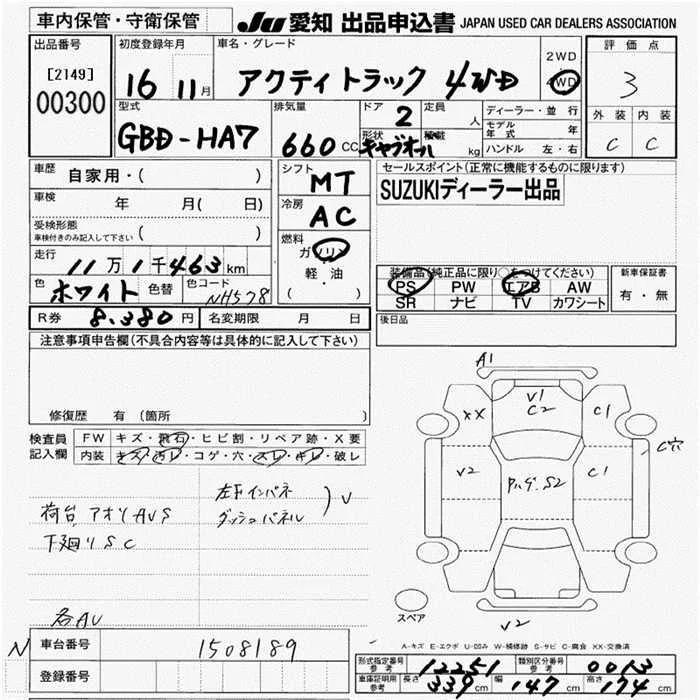 車内保管・守衛保管
JU 愛知 出品申込書 JAPAN USED CAR DEALERS ASSOCIATION
出品番号
[2149]
00300
初度登録年月
16 11月
車名・グレード
アクティ トラック 4WD
2WD
4WD
評価点
3
外装 内装
C C
型式
GBD-HA7
排気量
660 CC
ドア
2
形状
キャブオール
定員
人
積載
kg
ディーラー・並行
モデル年式 年
ハンドル 左・右
車歴
自家用・( )
車検
年 月( 日)
受検形態
車検付きのみ記入して下さい ( )
走行
11万1千463km
色
ホワイト
色替
色コード
NH578
R券 8,380円
名変期限 月 日
シフト
MT
冷房
AC
燃料
ガソリン
軽・油
( )
セールスポイント(正常に機能するものに限ります)
SUZUKIディーラー出品
装備品(純正品に限り○をつけてください)
PS PW エアB AW
SR ナビ TV カワシート
新車保証書
有・無
後日品
注意事項申告欄(不具合内容等は具体的に記入して下さい)
修復歴 有(箇所 )
検査員
記入欄
FW キズ・飛石・ヒビ割・リペア跡・X要
内装 キズ・汚レ・コゲ・穴・スレ・キレ・破レ
荷台,アオリAVS
下廻りSC
左下インパネ
ダッシュパネル
V
各AV
A1
V1
C2
XX
C1
C穴
V2
C1
S2
V2
スペア
A-キズ E-エクボ U-凹み W-補修跡 S-サビ C-腐食 XX-交換済
N
車台番号 1508189
登録番号
形式指定番号
参考
12251
類別区分番号
参考
0013
車庫証明用
参考
長さ 339cm 幅 147cm 高さ 174cm